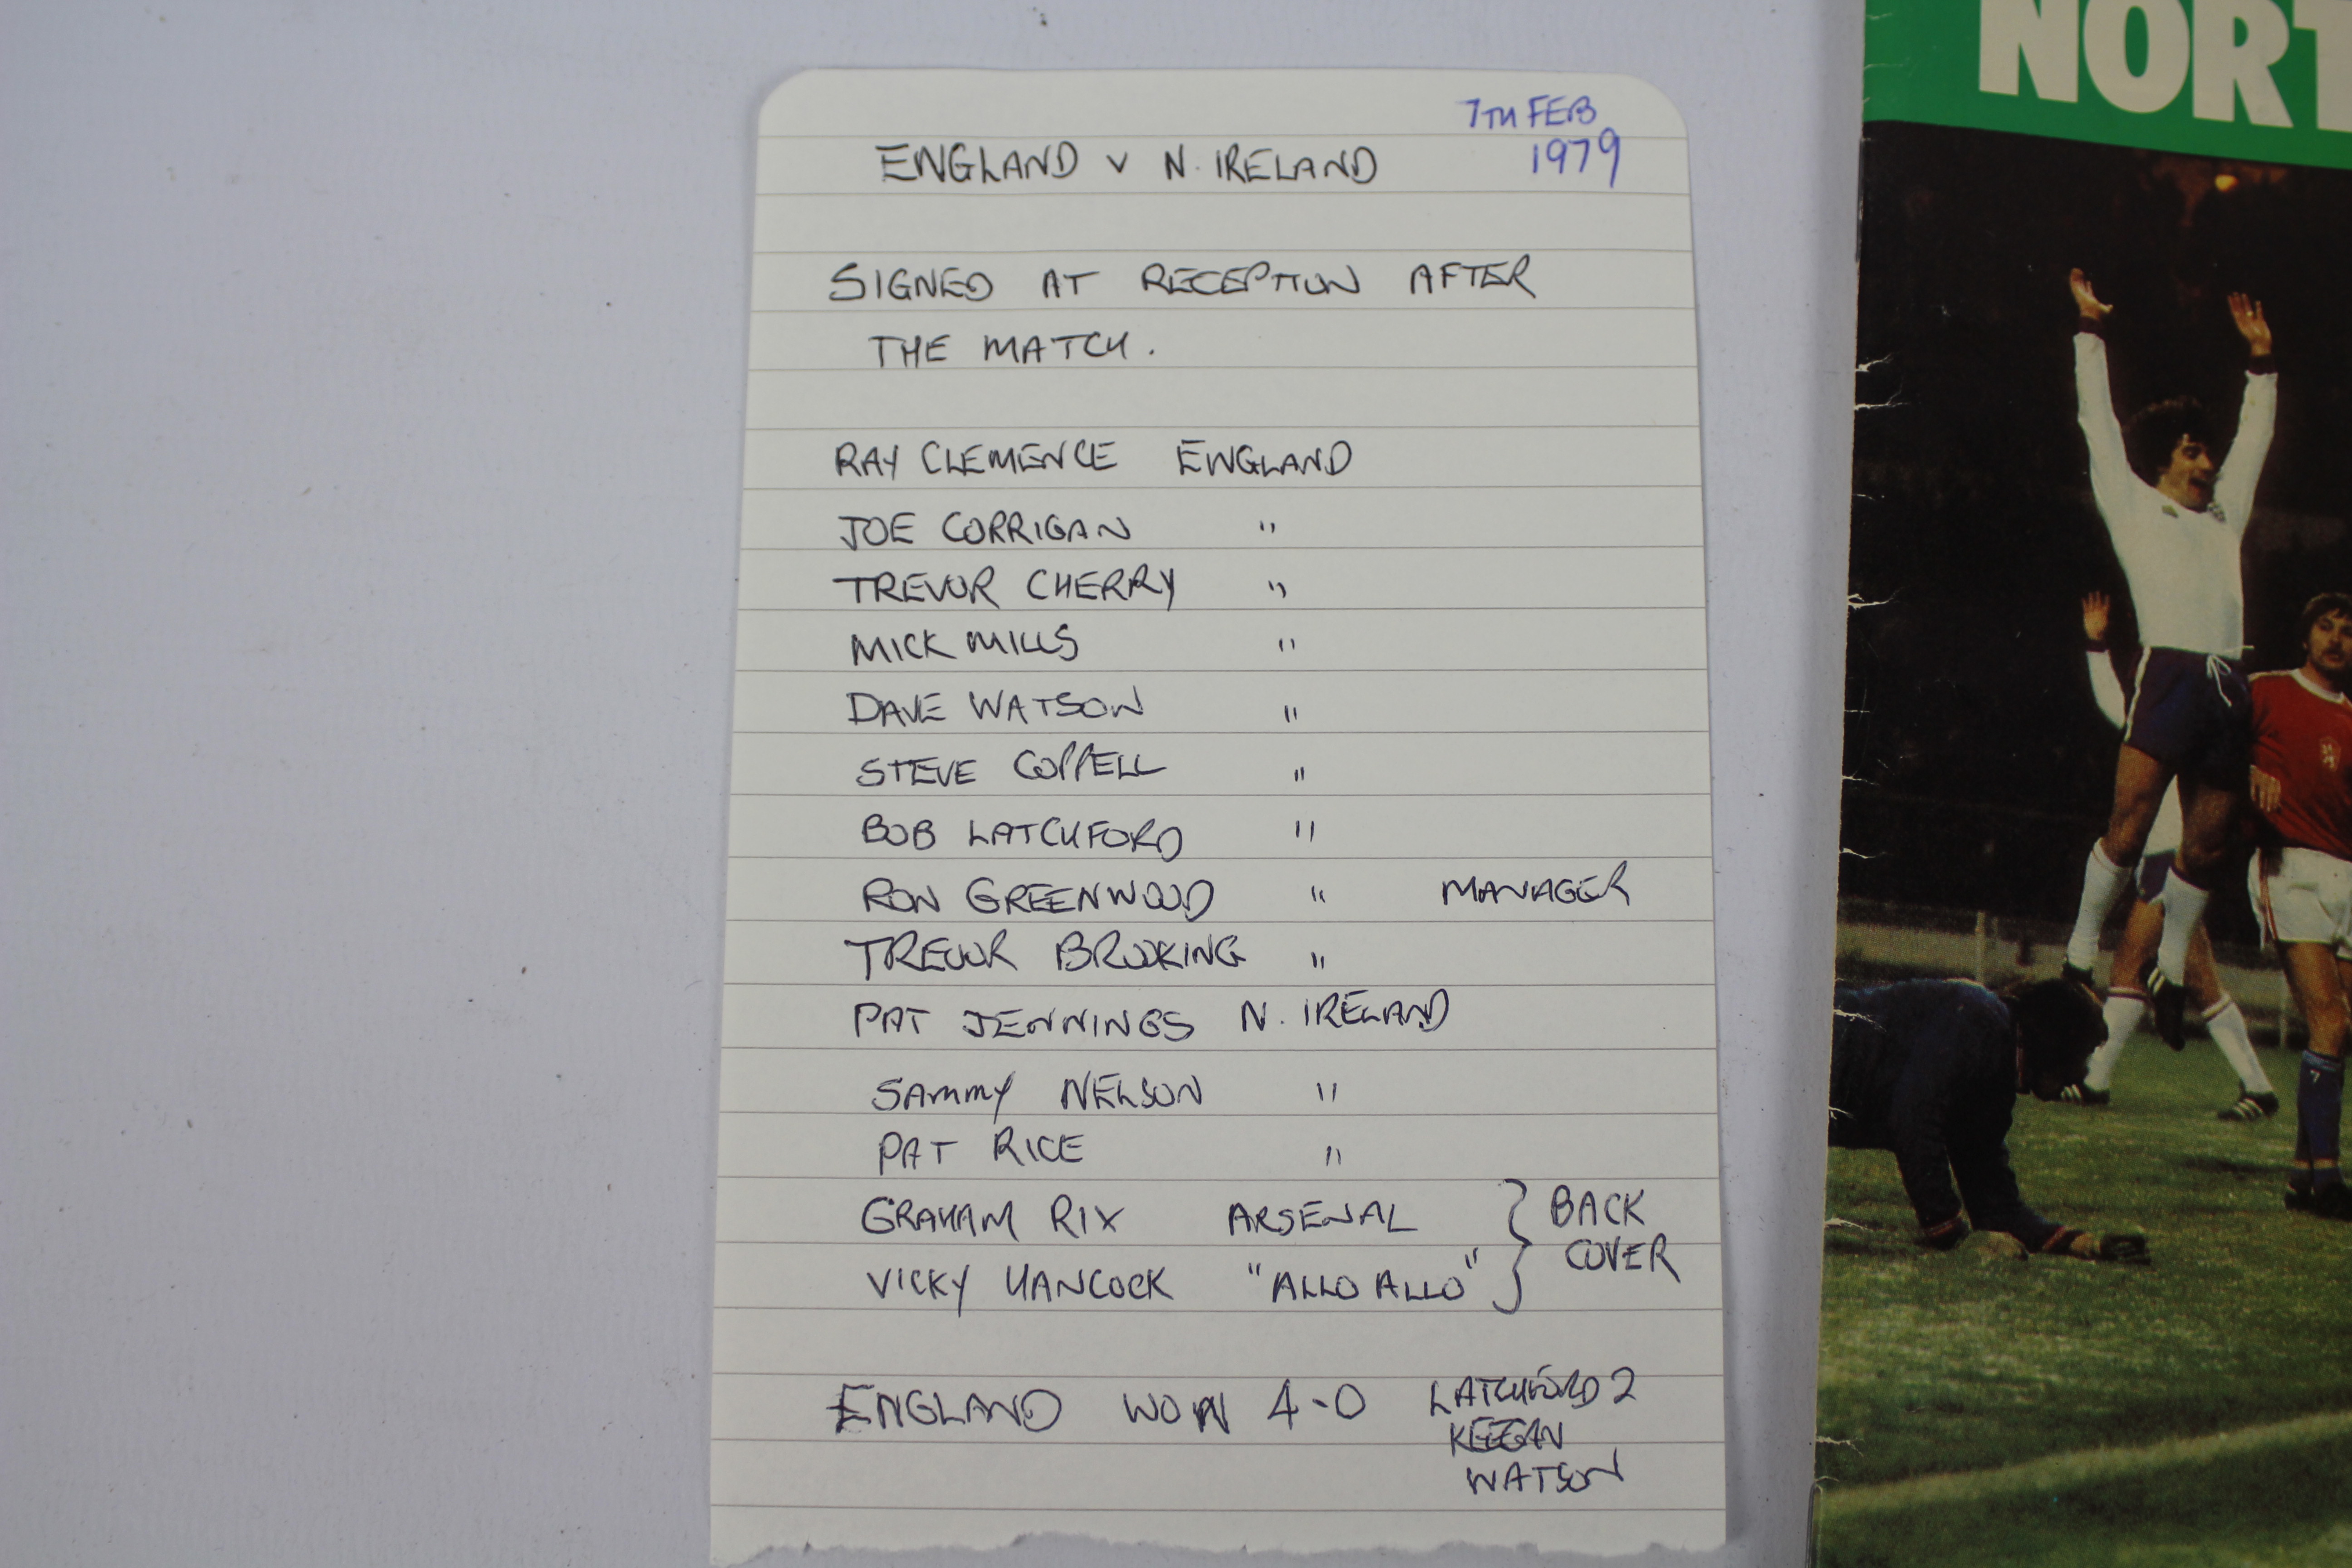 7TH FEB
1979
ENGLAND v N. IRELAND
SIGNED AT RECEPTION AFTER
THE MATCH.
RAY CLEMENCE ENGLAND
JOE CORRIGAN "
TREVOR CHERRY "
MICK MILLS "
DAVE WATSON "
STEVE COPPELL "
BOB LATCHFORD "
RON GREENWOOD " MANAGER
TREVOR BROOKING "
PAT JENNINGS N. IRELAND
SAMMY NELSON "
PAT RICE "
GRAHAM RIX ARSENAL } BACK
VICKY HANCOCK "ALLO ALLO" COVER
ENGLAND WON 4-0 LATCHFORD 2
KEEGAN
WATSON
NORT
7